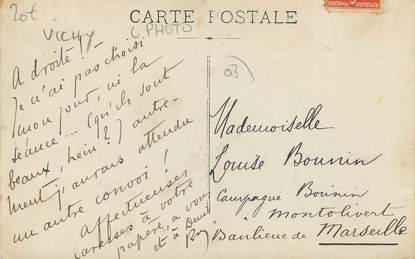 20€
VICHY
C. PHOTO
CARTE POSTALE
03
A droite !
Je n'ai pas choisi
mon jour, ni la
séance... (qu'ils sont
beaux, hein ?) autre-
ment j'aurais attendu
un autre convoi !
affectueuses
caresses à votre
papère, à vous
et à
Mademoiselle
Louise Bounin
Campagne Bounin
Montolivert
Banlieue de Marseille